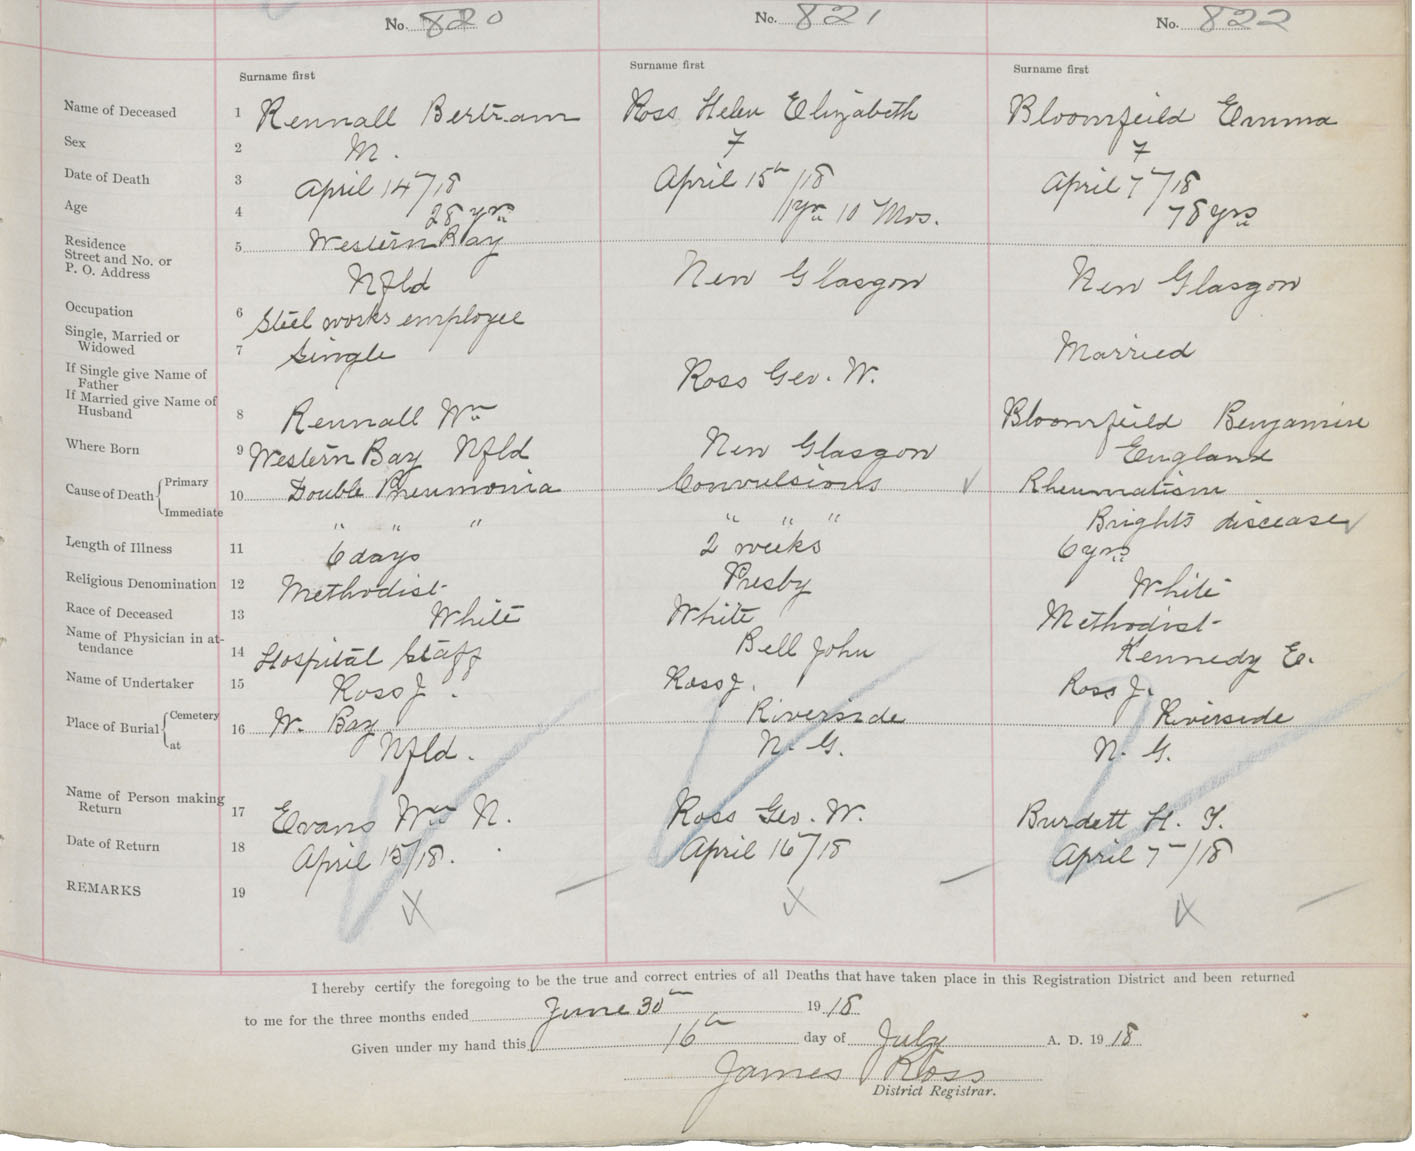 No. 820 No. 821 No. 822
Surname first Surname first Surname first
Name of Deceased 1 Rennall Bertram Ross Helen Elizabeth Bloomfeild Emma
Sex 2 M. F F
Date of Death 3 April 14/18 April 15th/18 April 7/18
Age 4 28 yrs 1 yr 10 Mos. 78 yrs
Residence 5 Western Bay
Street and No. or
P. O. Address Nfld New Glasgow New Glasgow
Occupation 6 Steel works employee
Single, Married or
Widowed 7 Single Married
If Single give Name of
Father Ross Geo. W.
If Married give Name of
Husband 8 Rennall Wm Bloomfeild Benjamin
Where Born 9 Western Bay Nfld New Glasgow England
Cause of Death { Primary 10 Double Pneumonia Convulsions Rheumatism
Immediate " " " " " " Brights discease
Length of Illness 11 6 days 2 weeks 6 yrs
Religious Denomination 12 Methodist Presby White
Race of Deceased 13 White White Methodist
Name of Physician in at-
tendance 14 Hospital Staff Bell John Kennedy E.
Name of Undertaker 15 Ross J. Ross J. Ross J.
Place of Burial { Cemetery 16 W. Bay Riverside Riverside
at Nfld. N. G. N. G.
Name of Person making
Return 17 Evans Wm N. Ross Geo. W. Burdett H. T.
Date of Return 18 April 15/18. April 16/18 April 7/18
REMARKS 19
I hereby certify the foregoing to be the true and correct entries of all Deaths that have taken place in this Registration District and been returned
to me for the three months ended June 30th 1918
Given under my hand this 16th day of July A. D. 1918
James Ross
District Registrar.